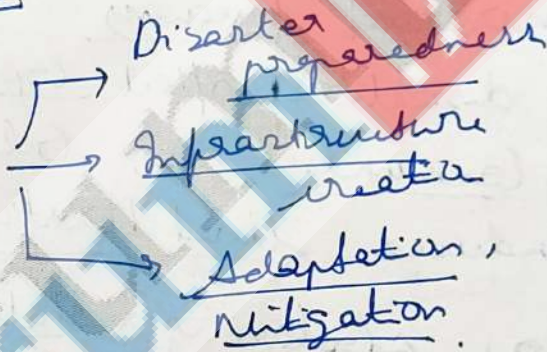 Disaster
preparedness
Infrastructure
creatn
Adaptation,
Mitigation.